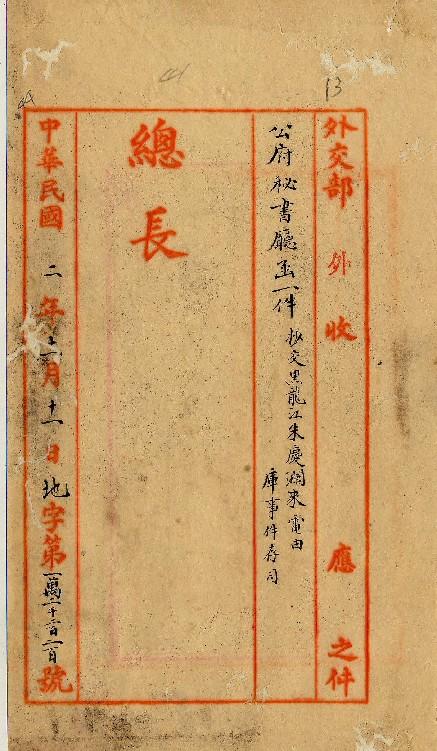 13
外交部 外 收 應 之件
公府秘書廳函一件 抄交黑龍江朱慶瀾來電由
庫事件存司
總長
中華民國 二 年 十一 月 十一 日 地 字第 號